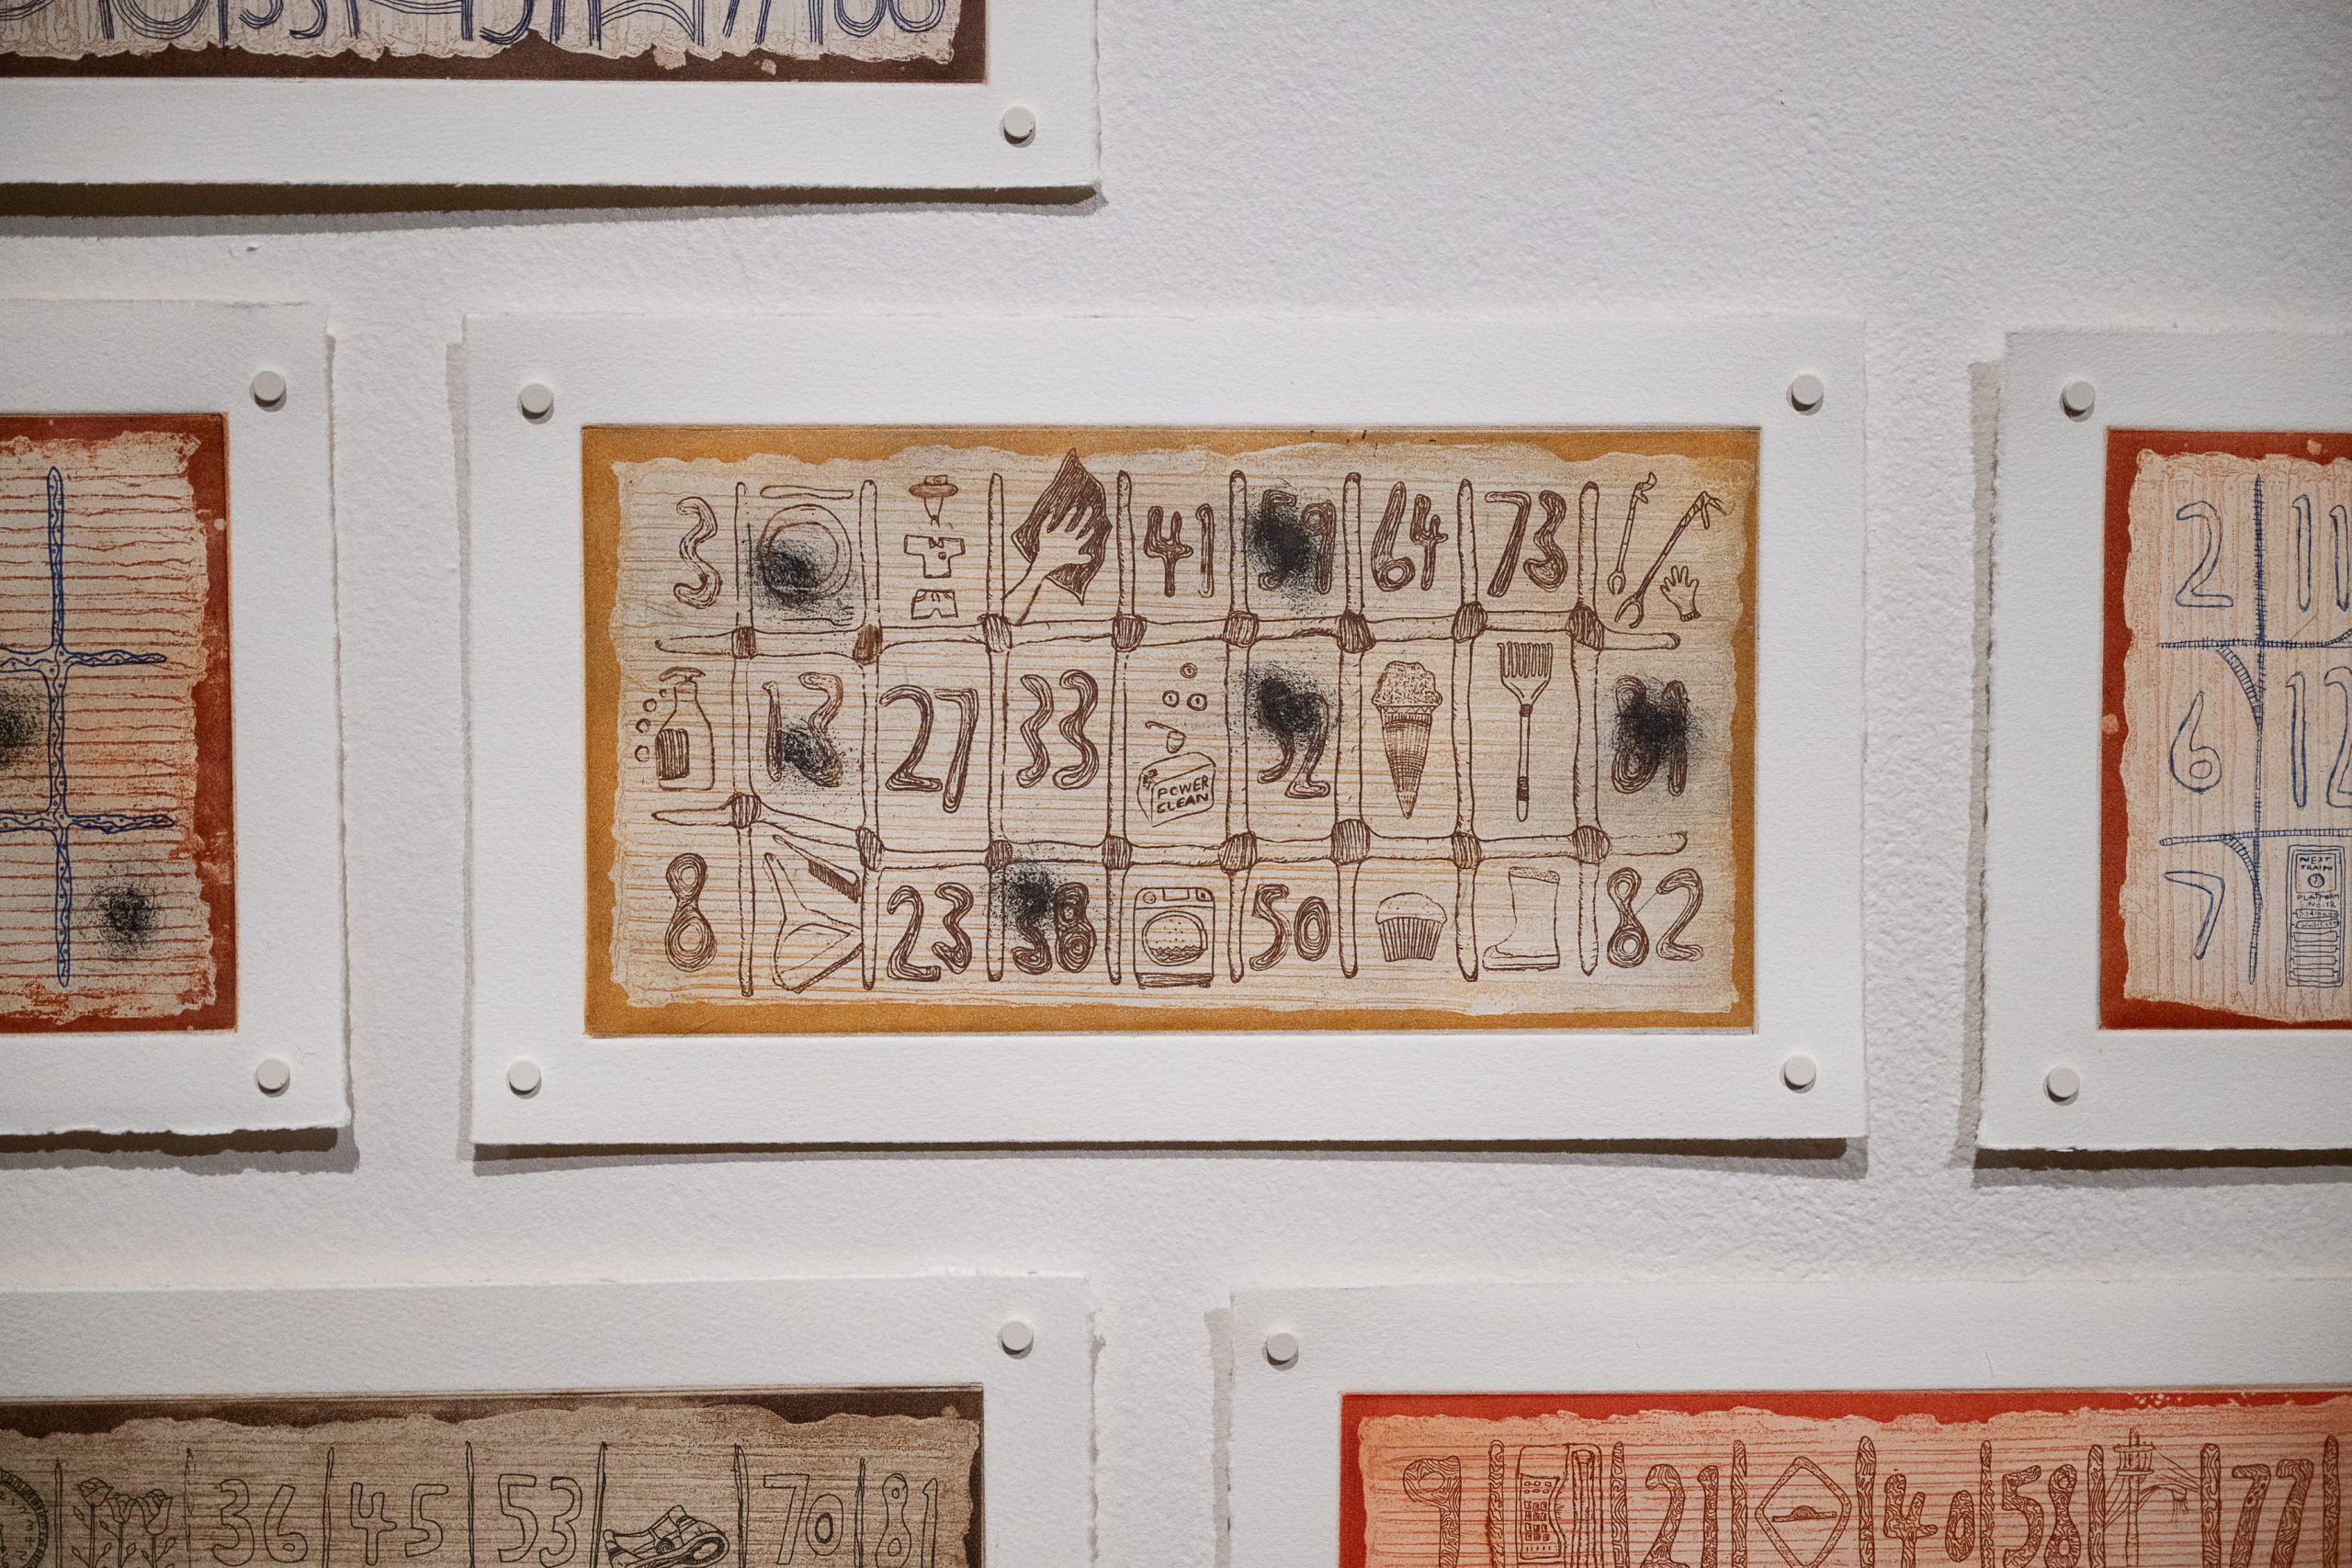 3 41 59 64 73
13 27 33 52
POWER
CLEAN
8 23 38 50 82
2 11
6 12
7
NEXT
TRAIN
PLATFORM
No. 12
36 45 53 70 81
9 21 40 58 77